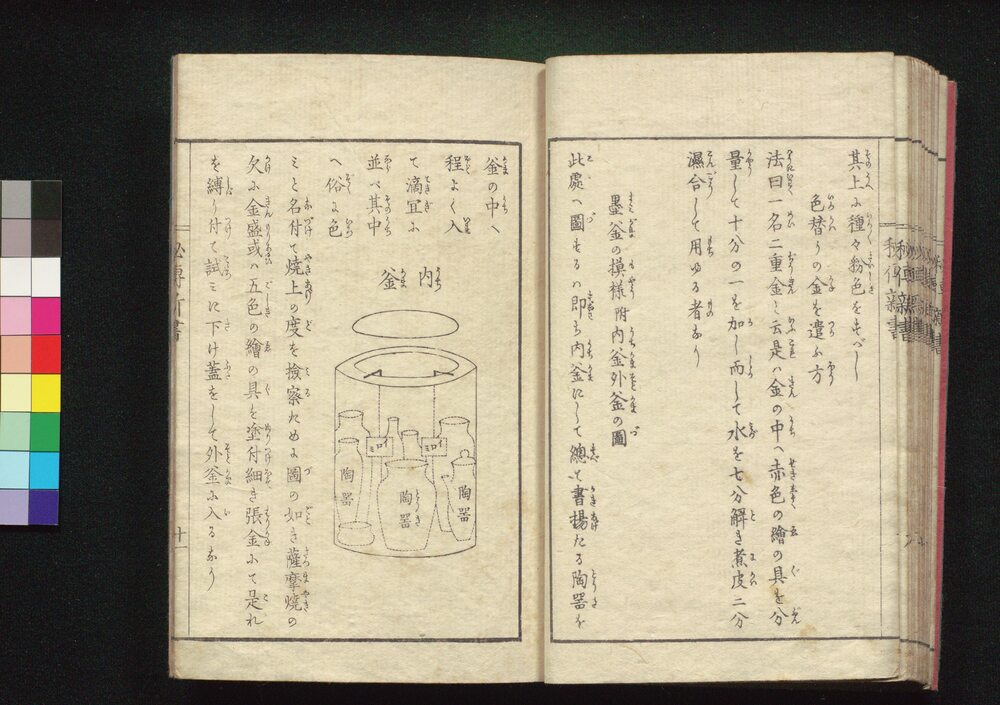 其上ニ種々粉色をすべし
色替りの金を遣ふ方
法曰一名二重金と云是ハ金の中ヘ赤色の繪の具を分
量して十分の一を加し而して水を七分解き煮皮二分
濕合して用ゆる者なり
墨釜の摸様附内釜外釜の圖
此處ヘ圖する ハ即ち内釜にして總て書揚たる陶器を
釜の中ヘ
程よく入
て滴冝ふ
並べ其中
ヘ俗に色
内
釜
イロミ
イロミ
陶器
陶器
陶器
ミと名付て焼上の度を撿察ため圖の如き薩摩燒の
欠ふ金盛或ハ五色の繪の具を塗付細き張金ふて是れ
を縛り付て試ミに下け蓋をして外釜ふ入るなり
秘傳新書
十一